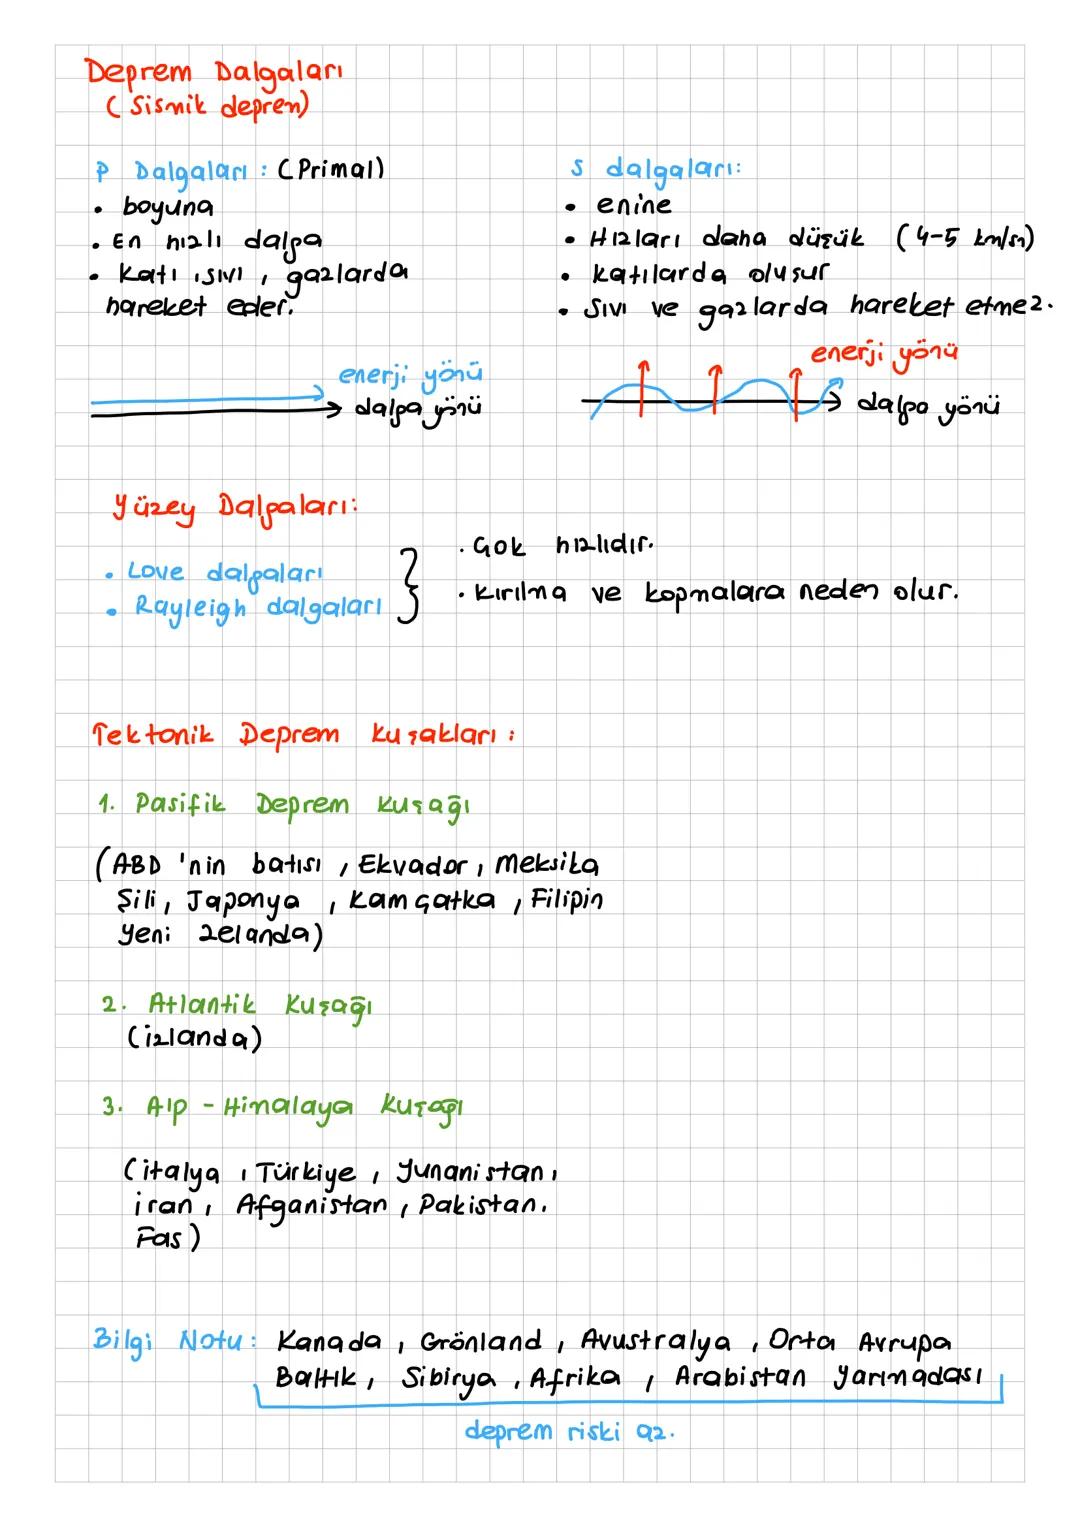 Deprem Dalgaları
(Sismik deprem)
P Dalgaları : (Primal)
• boyuna
• En hızlı dalga
• Katı, sıvı, gazlarda
hareket eder.
enerji yönü
dalga yönü
S dalgaları:
• enine
• Hızları daha düşük (4-5 km/sn)
• Katılarda oluşur
• Sıvı ve gazlarda hareket etmez.
enerji yönü
dalga yönü
Yüzey Dalgaları:
• Love dalgaları
• Rayleigh dalgaları
• Çok hızlıdır.
• Kırılma ve kopmalara neden olur.
Tektonik Deprem Kuşakları :
1. Pasifik Deprem Kuşağı
(ABD 'nin batısı, Ekvador, Meksika
Şili, Japonya, Kamçatka, Filipin
Yeni Zelanda)
2. Atlantik Kuşağı
(izlanda)
3. Alp - Himalaya Kuşağı
(italya, Türkiye, Yunanistan,
iran, Afganistan, Pakistan.
Fas)
Bilgi Notu : Kanada, Grönland, Avustralya, Orta Avrupa
Baltık, Sibirya, Afrika, Arabistan Yarımadası
deprem riski az.